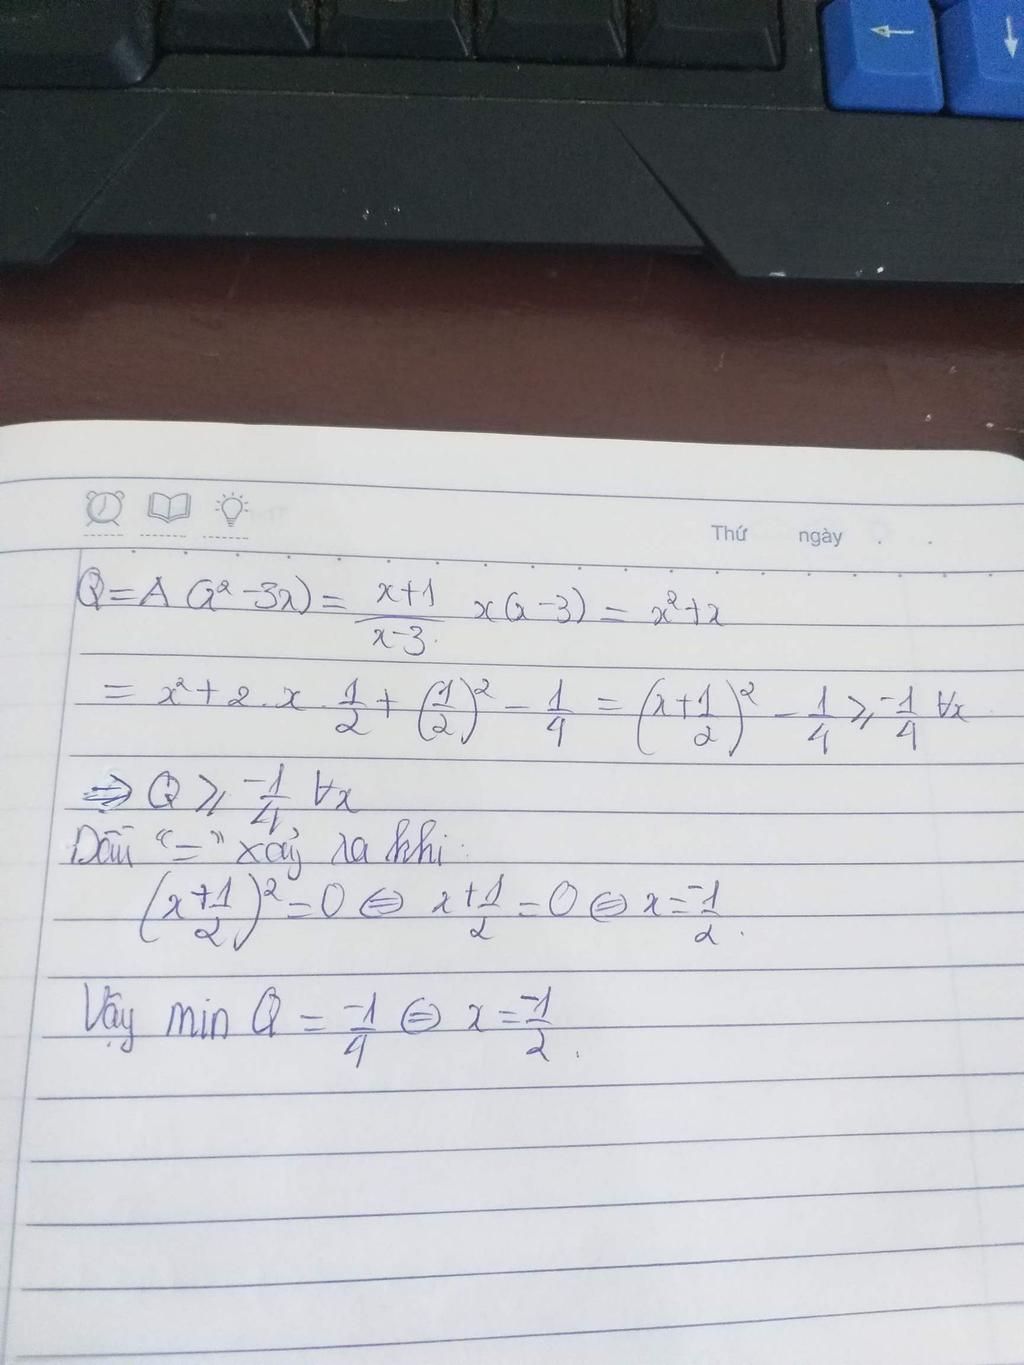 Thứ ngày . .
Q = A (x² - 3x) = \frac{x+1}{x-3} x(x-3) = x² + x
= x² + 2 . x . \frac{1}{2} + (\frac{1}{2})² - \frac{1}{4} = (x + \frac{1}{2})² - \frac{1}{4} ⩾ \frac{-1}{4} ∀x
⇒ Q ⩾ \frac{-1}{4} ∀x
Dấu "=" xảy ra khi:
(x + \frac{1}{2})² = 0 ⇔ x + \frac{1}{2} = 0 ⇔ x = \frac{-1}{2} .
Vậy min Q = \frac{-1}{4} ⇔ x = \frac{-1}{2} .